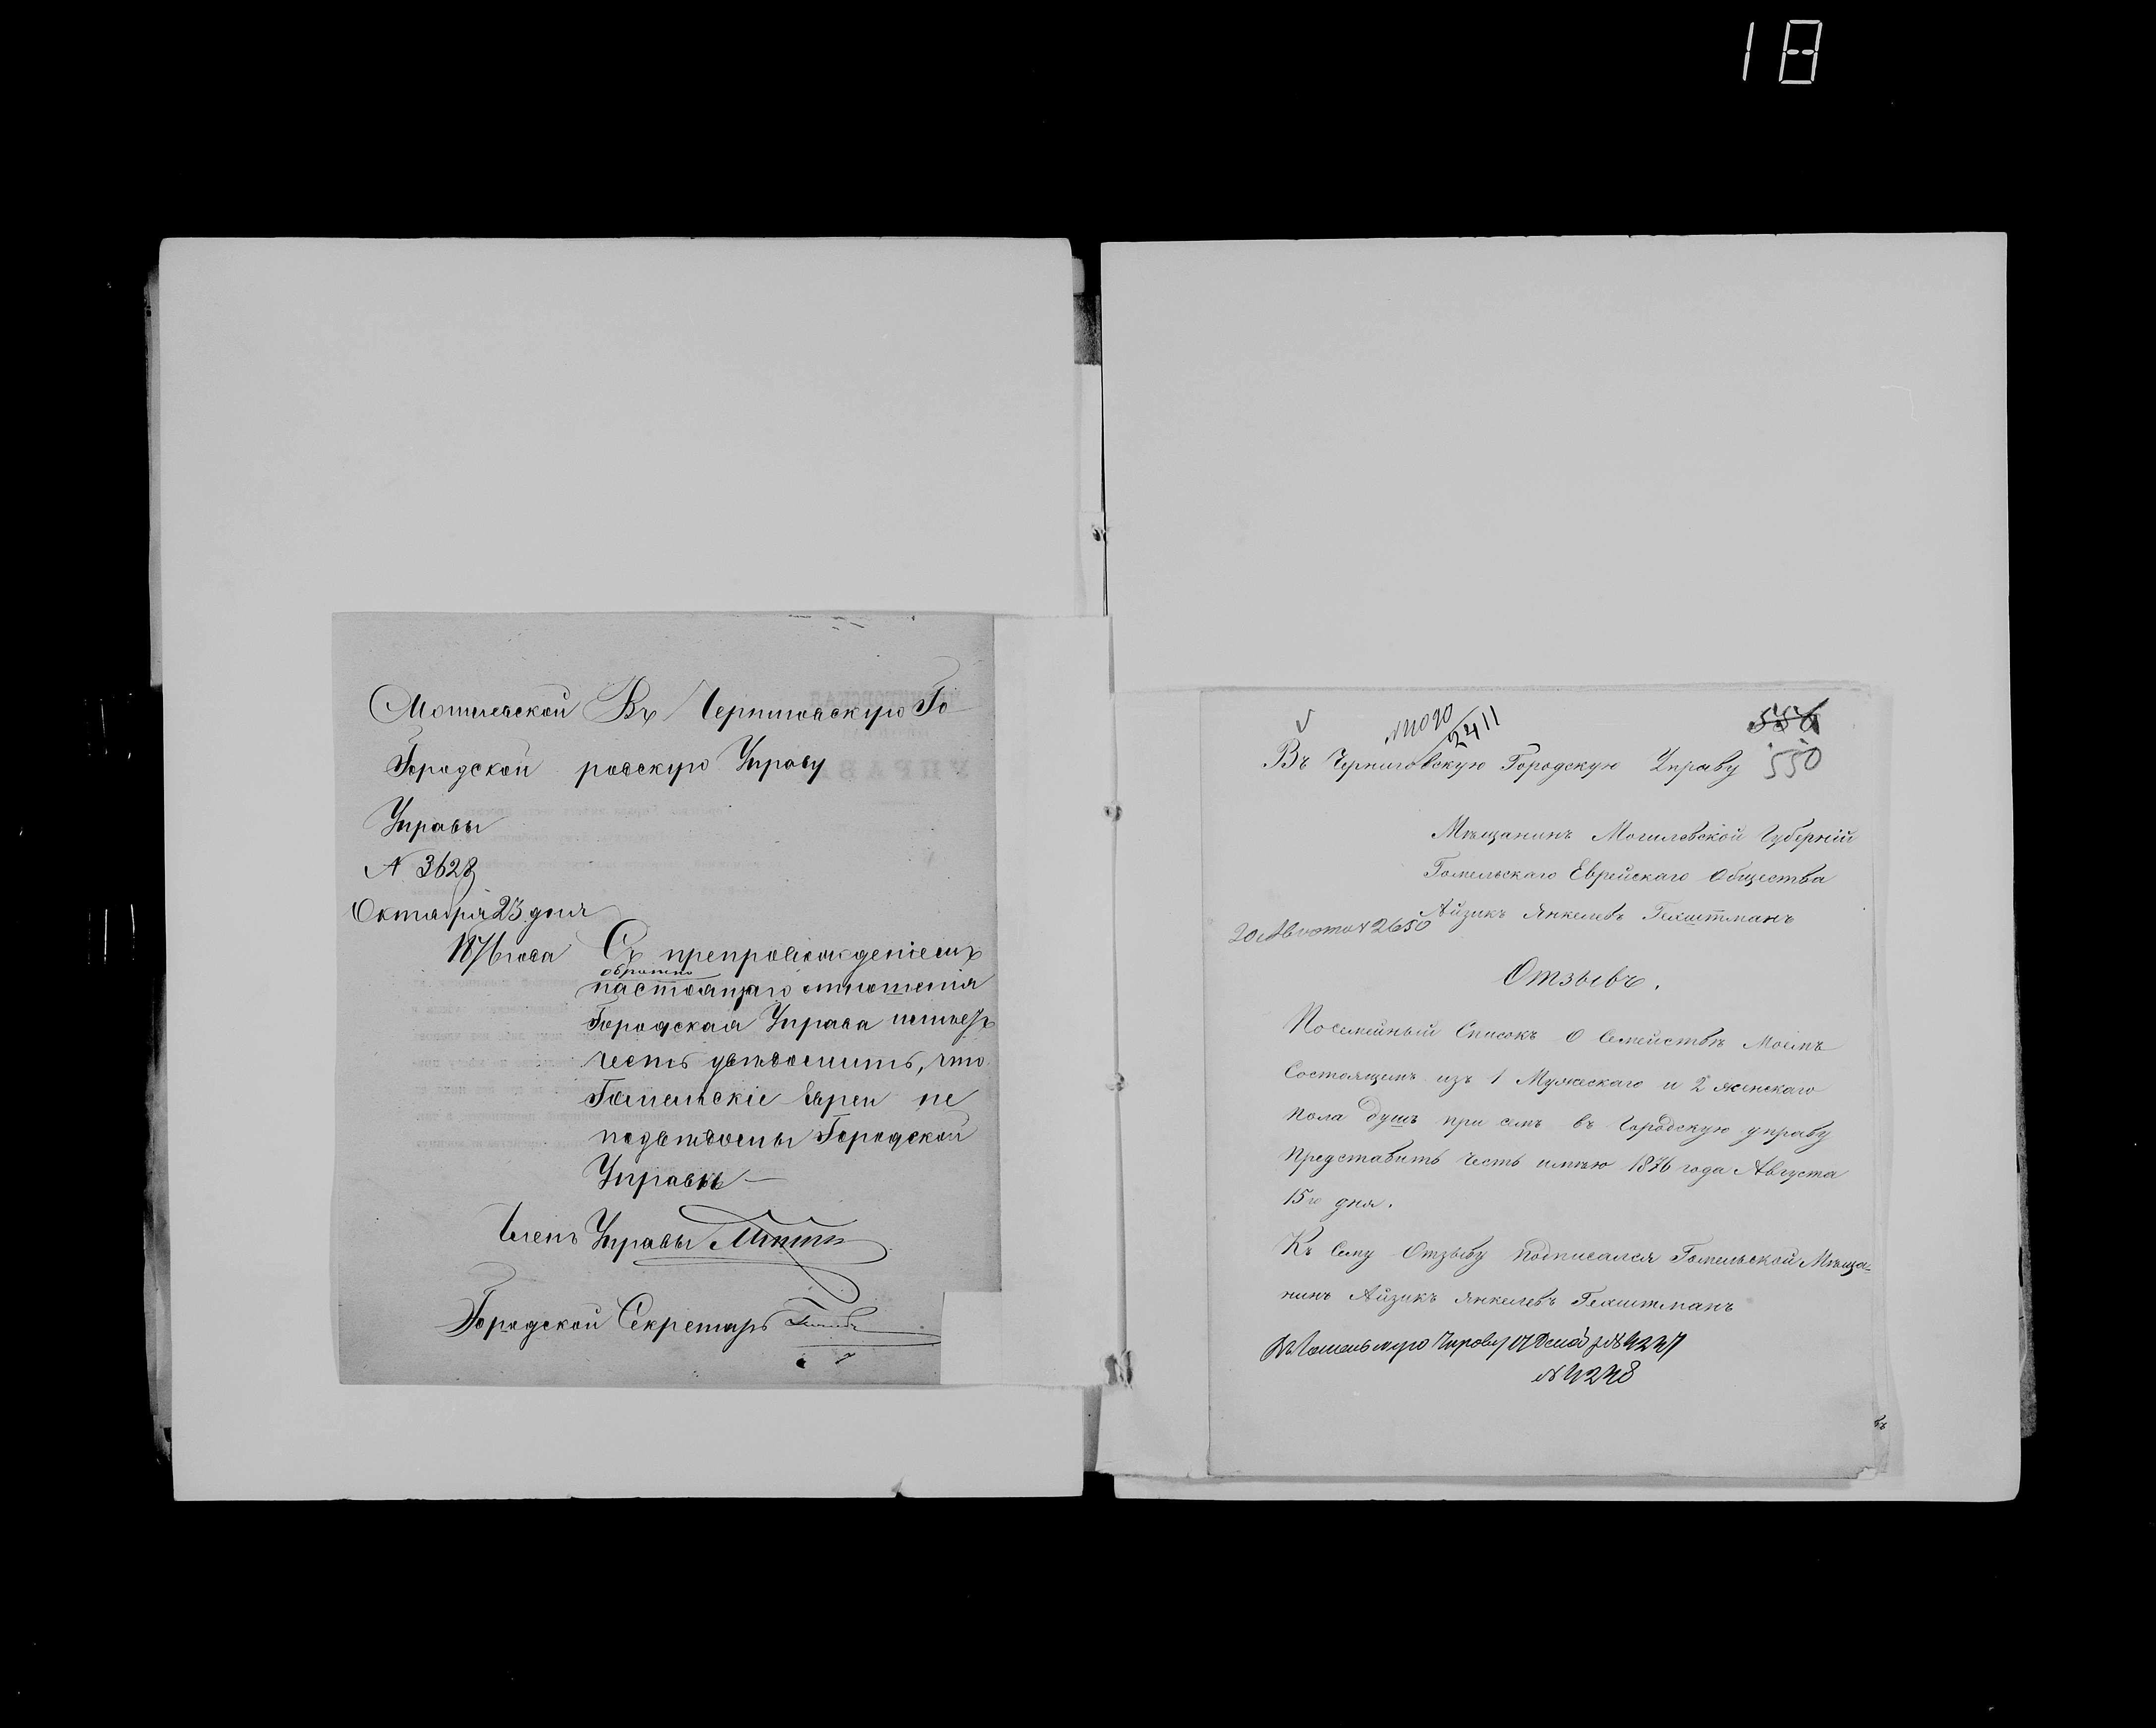 18
Могилевской Въ Черниговскую Го
Городской родскую Управу
Управы
N 3628
Октября 23 дня
1876 года Съ препровожденіемъ
обратно
настоящаго отношенія
Городская Управа имѣетъ
честь увѣдомить, что
Гомельскіе Евреи не
подвѣдомы Городской
Управѣ —
Членъ Управы
Городской Секретарь
N 11090
2411
550
Въ Черниговскую Городскую Управу
Мѣщанинъ Могилевской Губерніи
Гомельскаго Еврейскаго Общества
Айзикъ Янкелевъ Гехштманъ
20 Августа N 2650
Отзывъ.
Посемейный Списокъ о Семействѣ Моемъ
Состоящемъ изъ 1 Мужескаго и 2 женскаго
пола душъ при семъ въ Городскую управу
Представить Честь имѣю 1876 года Августа
15го дня.
Къ Сему Отзыву подписался Гомельской Мѣща-
нинъ Айзикъ Янкелевъ Гехштманъ
N 4248